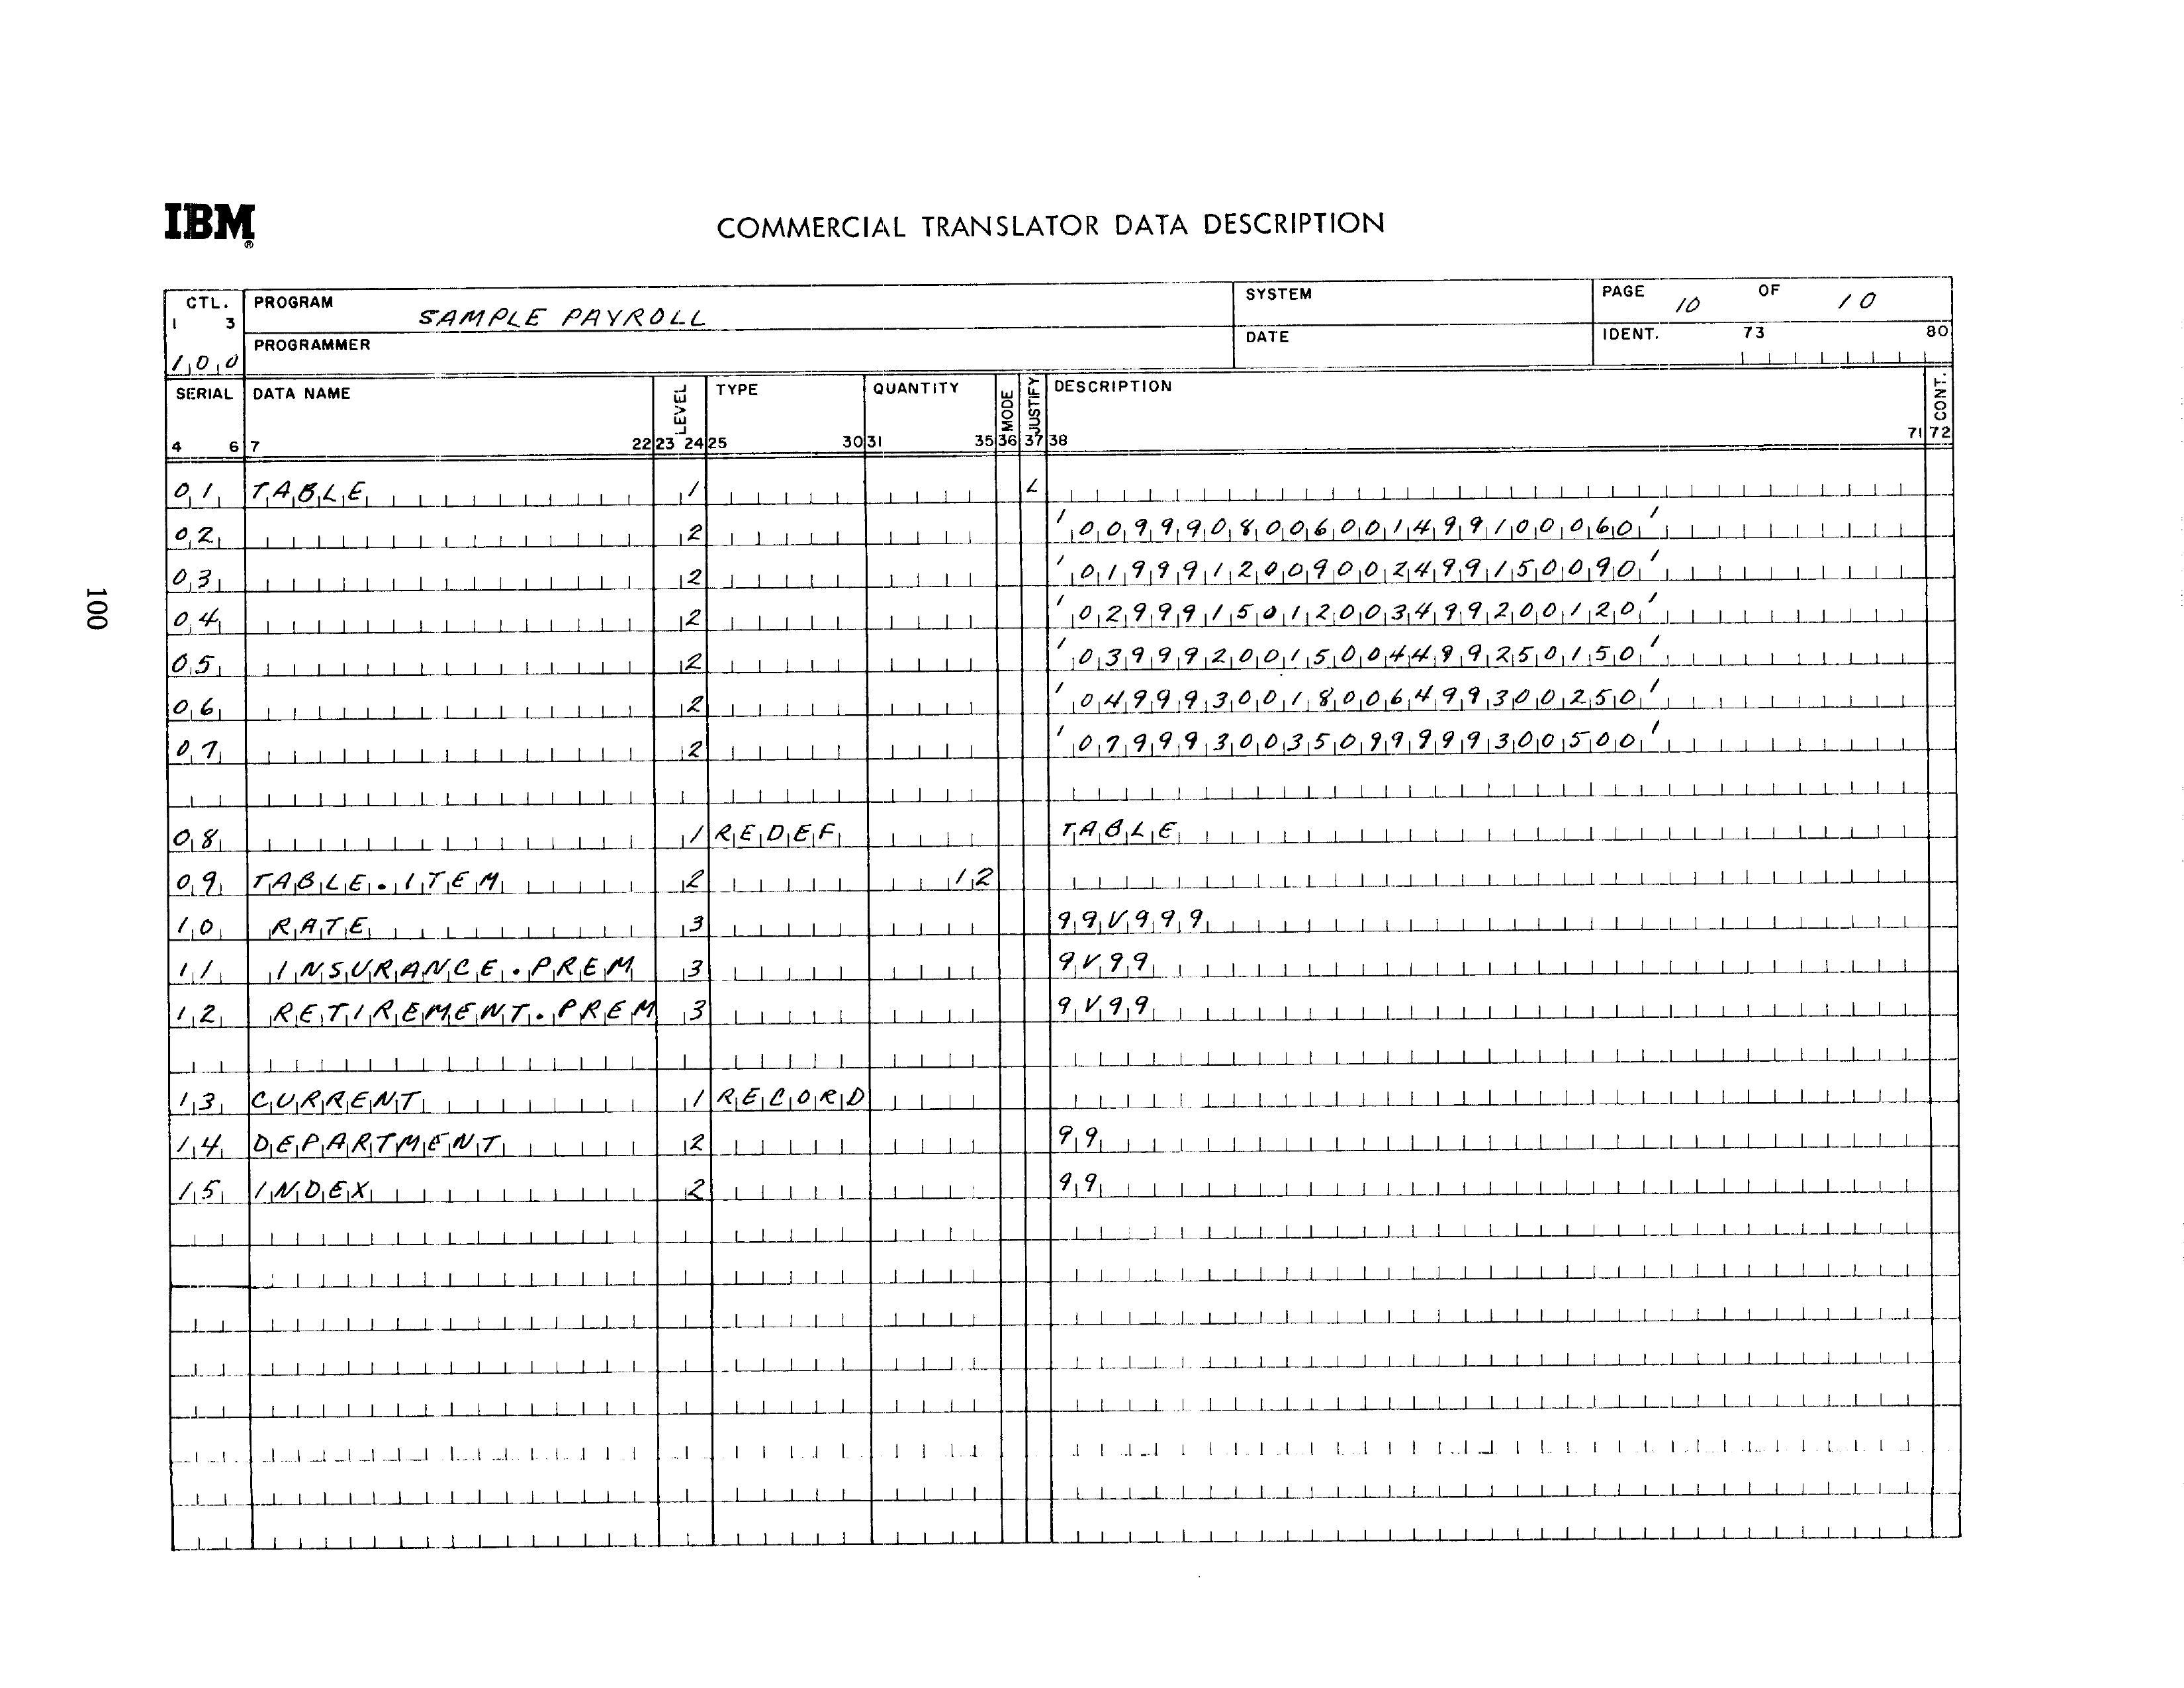 IBM®
COMMERCIAL TRANSLATOR DATA DESCRIPTION
CTL. PROGRAM SAMPLE PAYROLL SYSTEM PAGE 10 OF 10
1 3
100 PROGRAMMER DATE IDENT. 73 80
SERIAL DATA NAME LEVEL TYPE QUANTITY MODE JUSTIFY DESCRIPTION CONT.
4 6 7 22 23 24 25 30 31 35 36 37 38 71 72
01 TABLE 1 L
02 2 '0099908006001499100060'
03 2 '0199912009002499150090'
04 2 '0299915012003499200120'
05 2 '0399920015004499250150'
06 2 '0499930018006499300250'
07 2 '0799930035099999300500'
08 1 REDEF TABLE
09 TABLE.ITEM 2 12
10 RATE 3 99V999
11 INSURANCE.PREM 3 9V99
12 RETIREMENT.PREM 3 9V99
13 CURRENT 1 RECORD
14 DEPARTMENT 2 99
15 INDEX 2 99
100